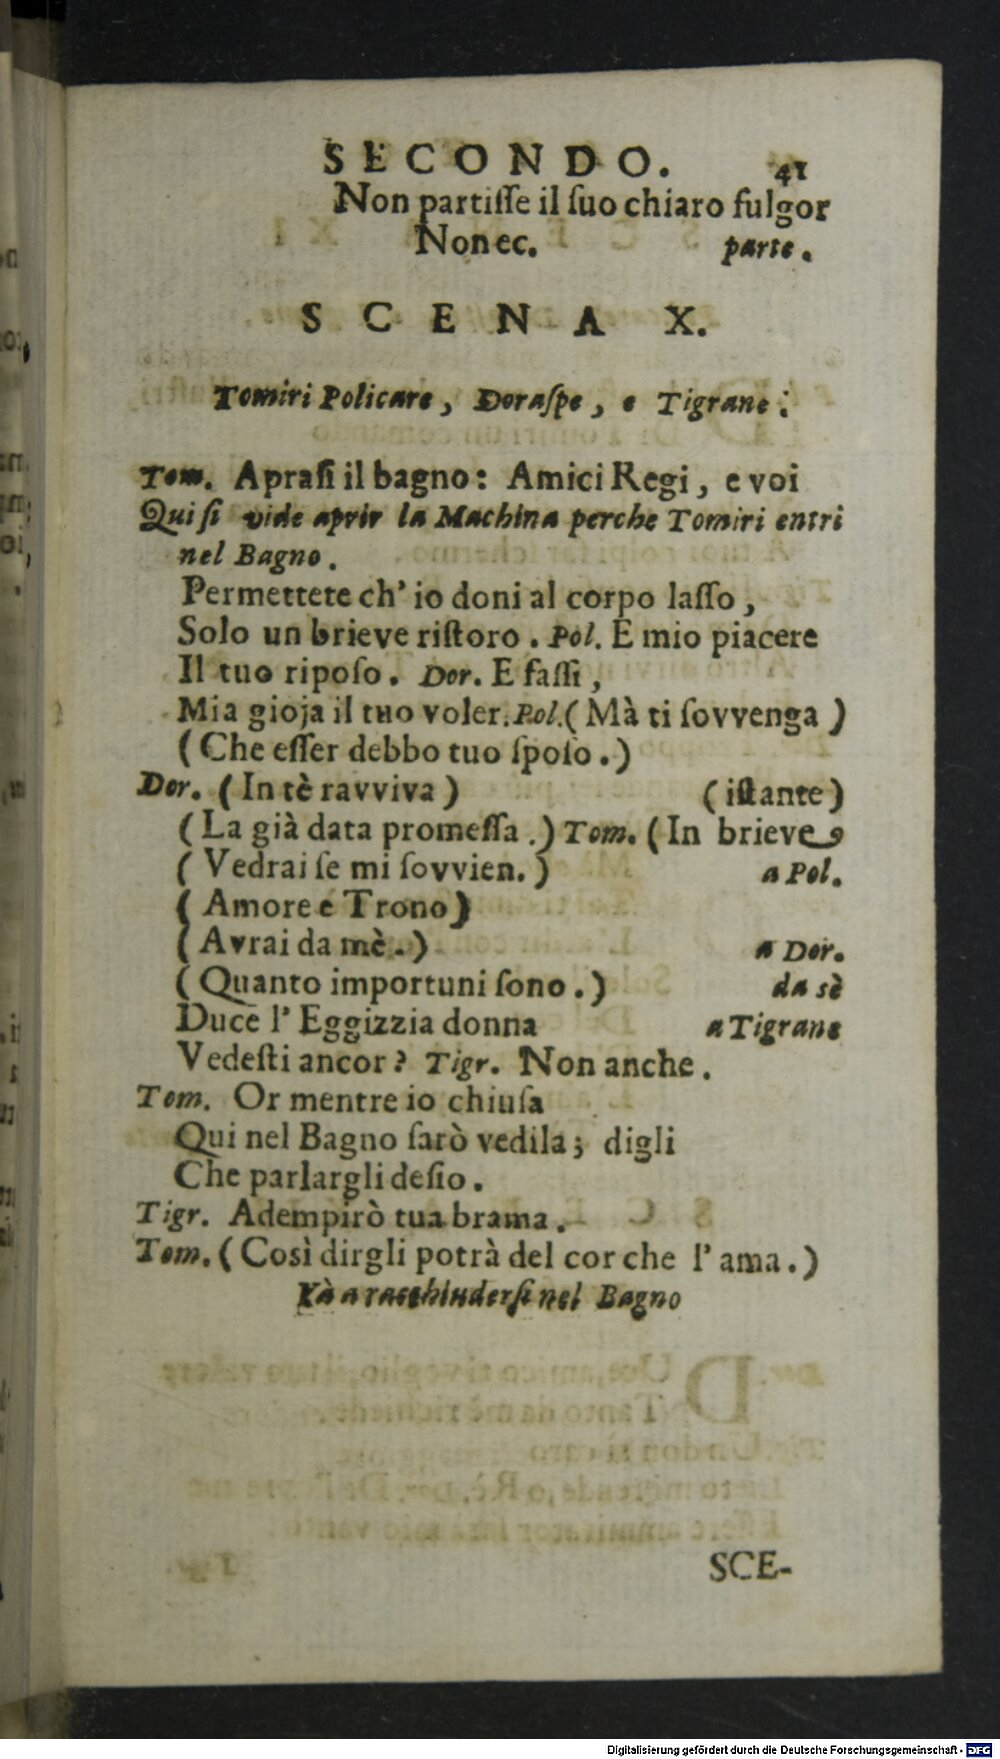 SECONDO. 41
Non partiſſe il ſuo chiaro fulgor
Non ec. parte.
SCENA X.
Tomiri Policare, Doraſpe, e Tigrane.
Tom. Apraſi il bagno: Amici Regi, e voi
Qui ſi vide aprir la Machina perche Tomiri entri
nel Bagno.
Permettete ch' io doni al corpo laſſo,
Solo un brieve riſtoro. Pol. E mio piacere
Il tuo ripoſo. Dor. E faſſi,
Mia gioja il tuo voler. Pol. (Mà ti ſovvenga)
(Che eſſer debbo tuo ſpoſo.)
Dor. (In tè ravviva) (iſtante)
(La già data promeſſa.) Tom. (In brieve
(Vedrai ſe mi ſovvien.) a Pol.
(Amore e Trono)
(Avrai da mè.) a Dor.
(Quanto importuni ſono.) da sè
Duce l' Eggizzia donna a Tigrane
Vedeſti ancor? Tigr. Non anche.
Tom. Or mentre io chiuſa
Qui nel Bagno ſarò vedila; digli
Che parlargli deſio.
Tigr. Adempirò tua brama.
Tom. (Così dirgli potrà del cor che l' ama.)
Và a racchiuderſi nel Bagno
SCE-
Digitalisierung gefördert durch die Deutsche Forschungsgemeinschaft - DFG